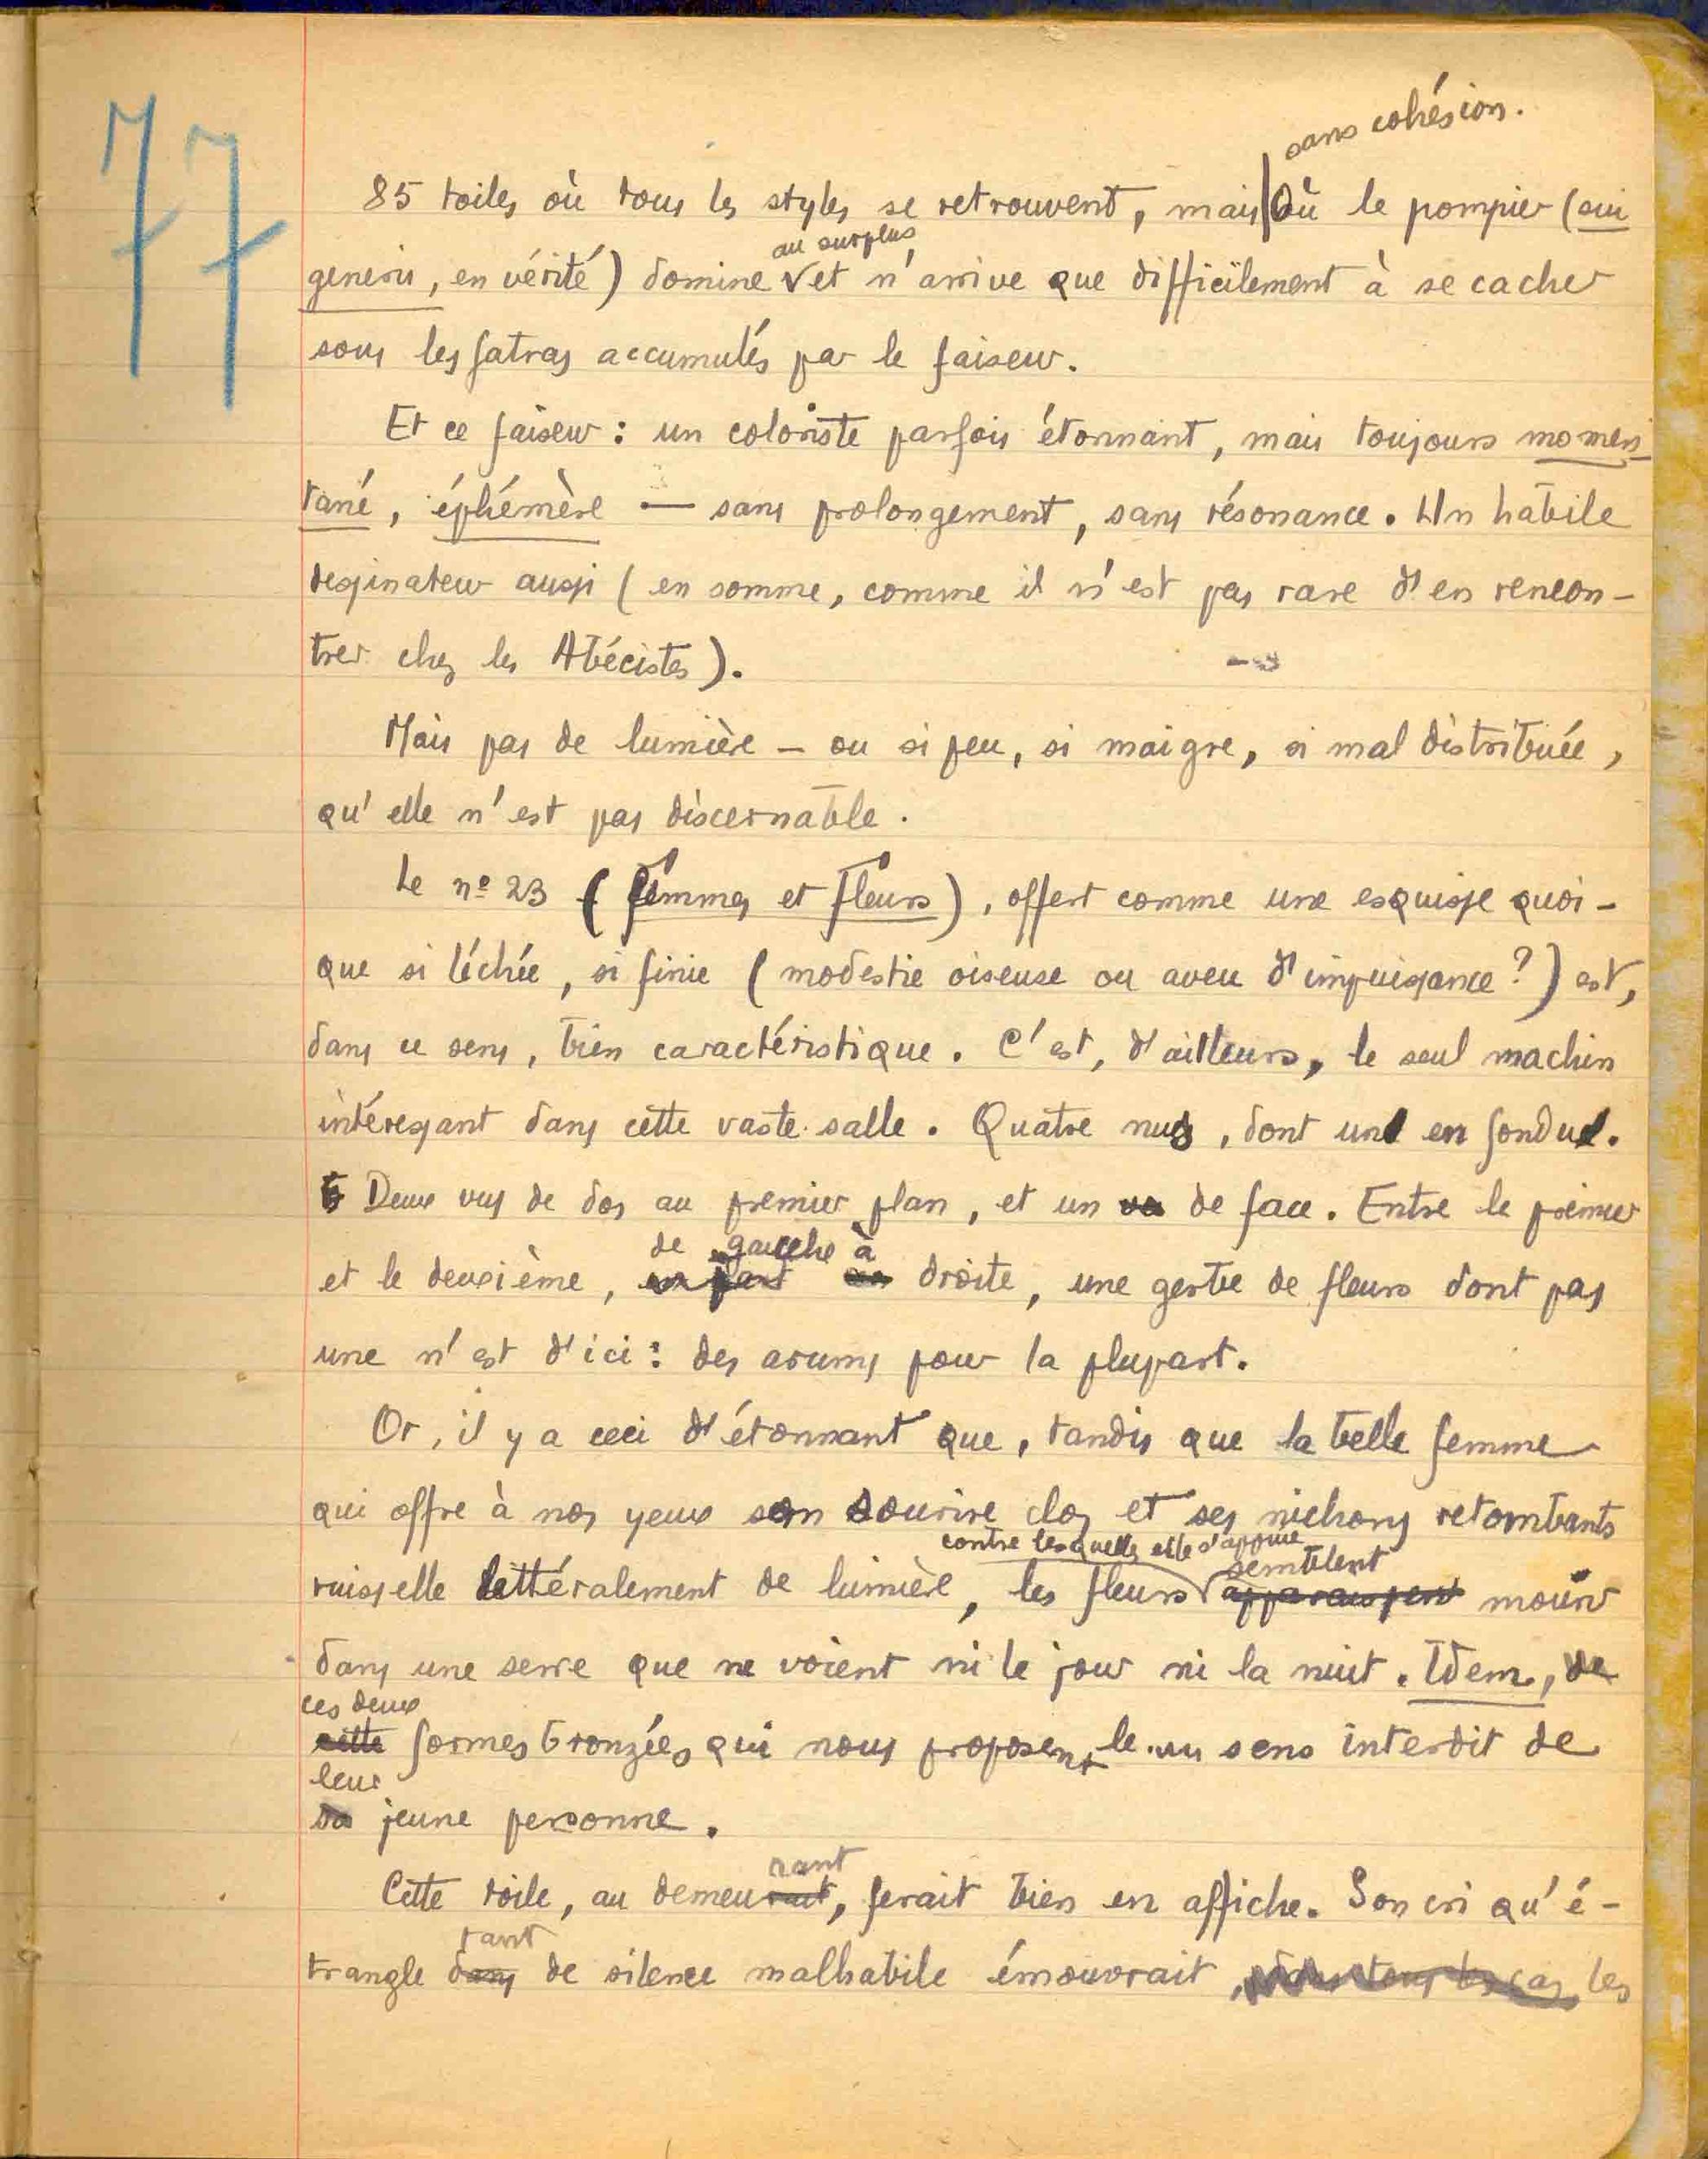 77
sans cohésion.
85 toiles où tous les styles se retrouvent, mais | Où le pompier (sui
au surplus
generis, en vérité) domine V et n'arrive que difficilement à se cacher
sous les fatras accumulés par le faiseur.
Et ce faiseur : un coloriste parfois étonnant, mais toujours momen-
tané, éphémère — sans prolongement, sans résonance. Un habile
dessinateur aussi (en somme, comme il n'est pas rare d'en rencon-
trer chez les Abécistes).
Mais pas de lumière – ou si peu, si maigre, si mal distribuée,
qu'elle n'est pas discernable.
Le nº 23 (Femmes et Fleurs), offert comme une esquisse quoi-
que si léchée, si finie (modestie oiseuse ou aveu d'impuissance ?) est,
dans ce sens, bien caractéristique. C'est, d'ailleurs, le seul machin
intéressant dans cette vaste salle. Quatre nus, dont un en fondu.
Deux vus de dos au premier plan, et un de face. Entre le premier
de gauche à
et le deuxième, droite, une gerbe de fleurs dont pas
une n'est d'ici : des arums pour la plupart.
Or, il y a ceci d'étonnant que, tandis que la belle femme
qui offre à nos yeux son sourire clos et ses nichons retombants
contre lesquelles elle s'appuie
semblent
ruisselle littéralement de lumière, les fleurs apparaissent mourir
dans une serre que ne voient ni le jour ni la nuit. Idem, de
ces deux
cette formes bronzées qui nous proposent le sens interdit de
leur
sa jeune personne.
rant
Cette toile, au demeurait, ferait bien en affiche. Son cri qu'é-
tant
trangle dans de silence malhabile émouvrait, dans tous les cas, les